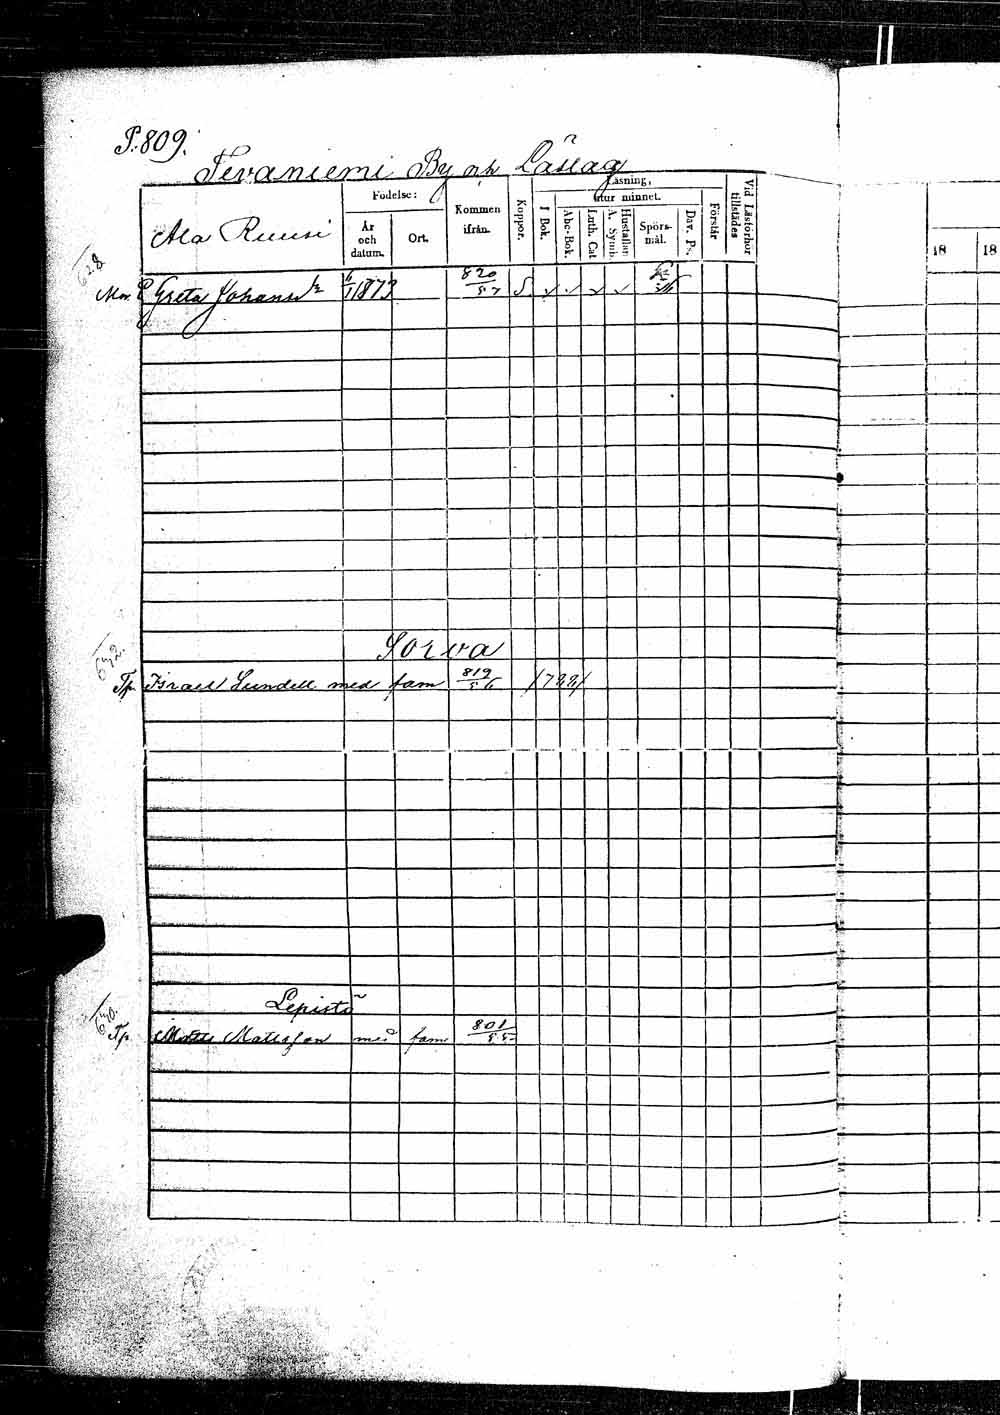 P. 809.
Tervaniemi By och Läslag
Ala Ruusi
Födelse:
År och datum.
Ort.
Kommen ifrån.
Koppor.
Läsning,
I Bok.
utur minnet.
Abc-Bok.
Luth. Cat
A. Symb.
Hustaflan
Spörsmål.
Dav. Ps.
Förstår
Vid Läsförhör tillstädes
18
18
628
Greta Johansd:r 6/1 1873 820/57
642.
Sorva
Israel Lundell med fam 819/56
640.
Lepistö
Matts Matsson med fam 801/55